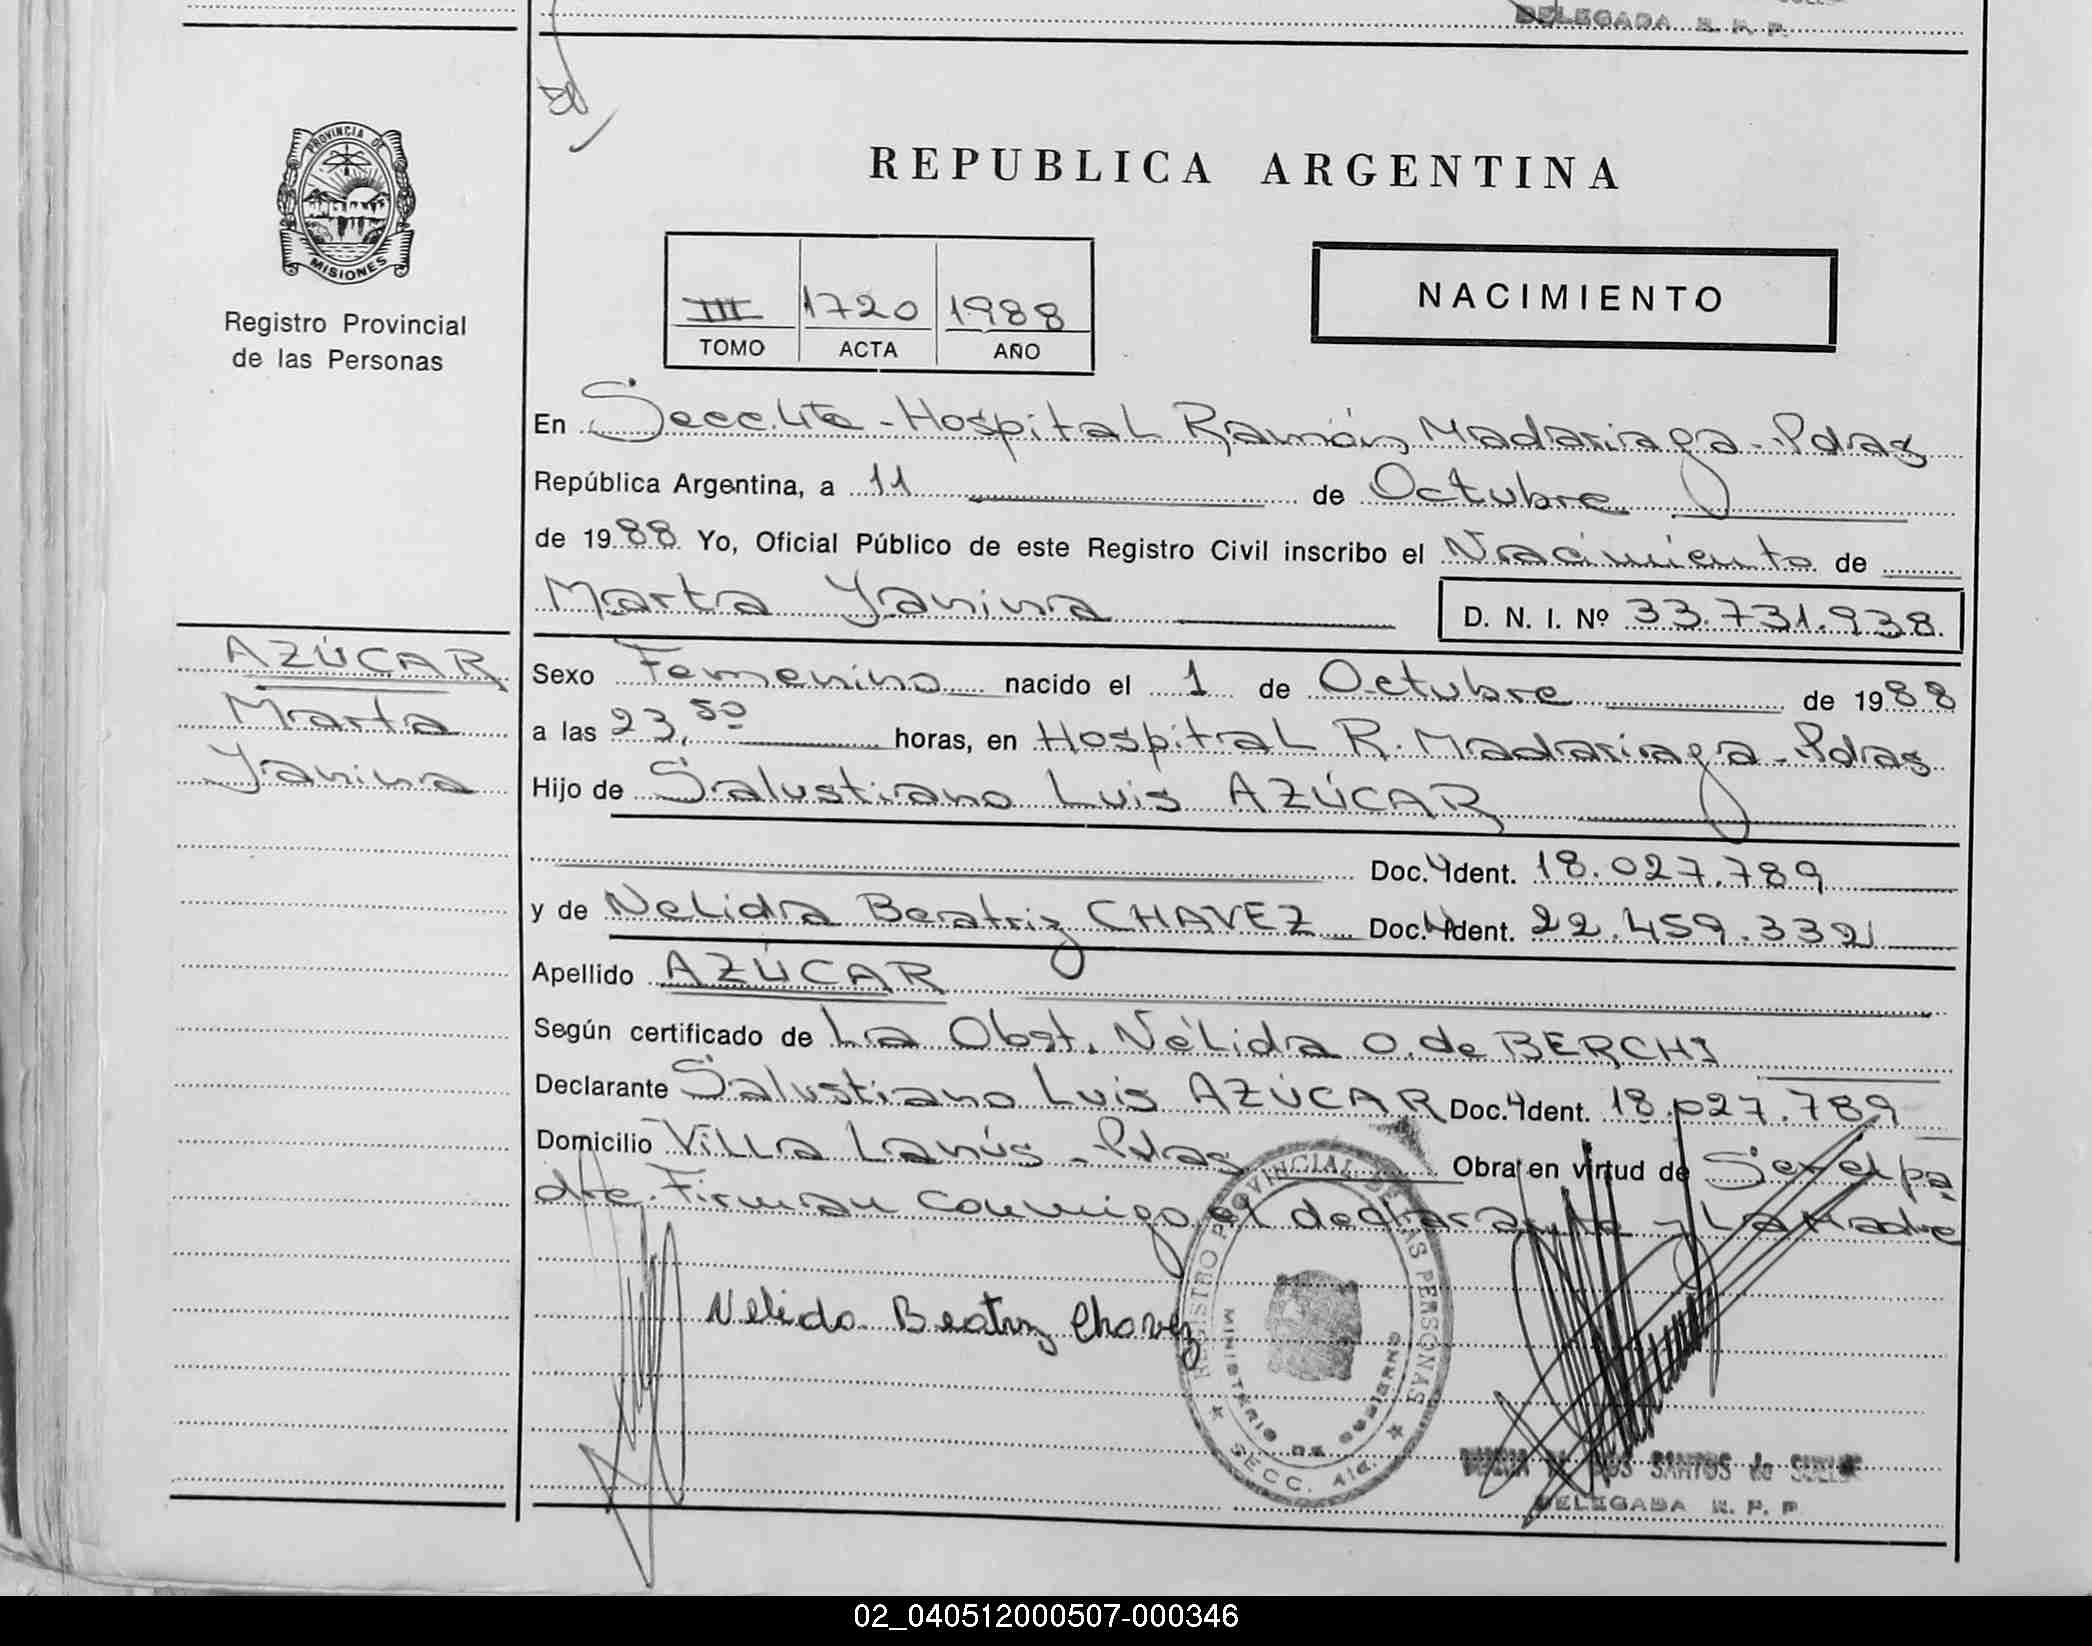 DELEGADA R. P. P.
PROVINCIA DE
MISIONES
Registro Provincial
de las Personas
REPUBLICA ARGENTINA
III 1720 1988
TOMO ACTA AÑO
NACIMIENTO
En Secc. 4ta - Hospital Ramón Madariaga - Pdas
República Argentina, a 11 de Octubre
de 1988 Yo, Oficial Público de este Registro Civil inscribo el Nacimiento de
Marta Yanina D. N. I. Nº 33.731.938.
AZÚCAR
Marta
Yanina
Sexo Femenino nacido el 1 de Octubre de 1988
a las 23,50 horas, en Hospital R. Madariaga - Pdas
Hijo de Salustiano Luis AZÚCAR
Doc. Ident. 18.027.789
y de Nelida Beatriz CHAVEZ Doc. Ident. 22.459.332
Apellido AZÚCAR
Según certificado de La Obst. Nélida O. de BERCHI
Declarante Salustiano Luis AZÚCAR Doc. Ident. 18.027.789
Domicilio Villa Lanús - Pdas Obra en virtud de Ser el pa
dre. Firman conmigo el declarante y La Madre
Nelida Beatriz Chavez
REGISTRO PROVINCIAL DE LAS PERSONAS
MINISTERIO DE GOBIERNO
SECC. 4ta.
DE LOS SANTOS de
DELEGADA R. P. P.
02_040512000507-000346